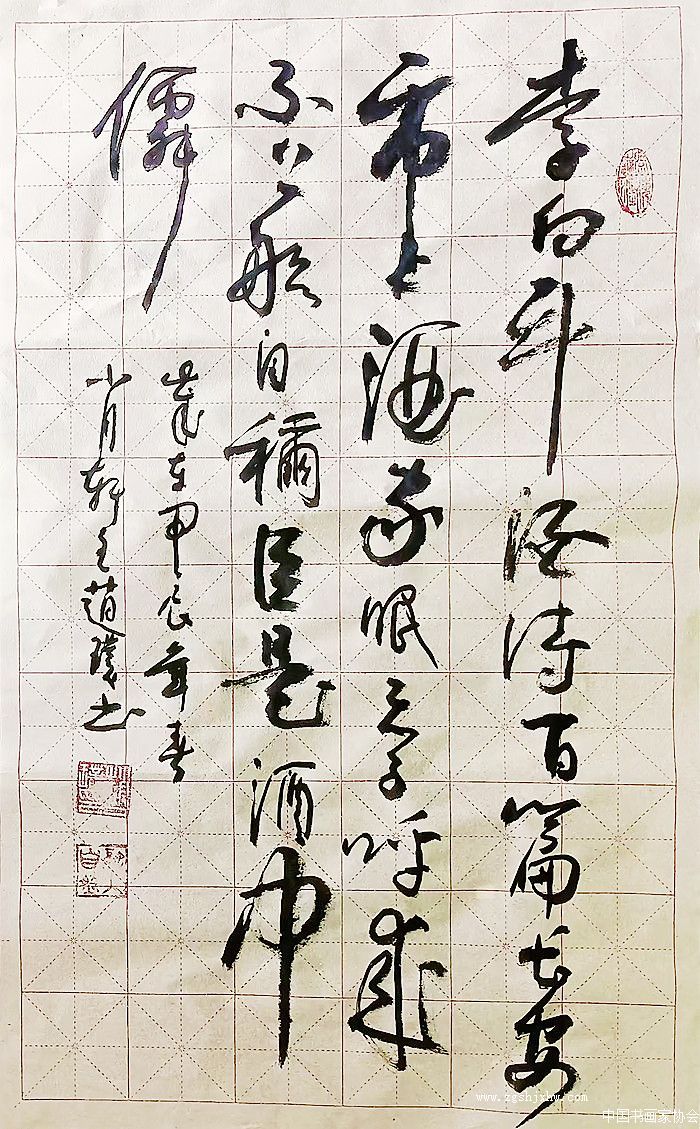 李白斗酒诗百篇长安
市上酒家眠天子呼来
不上船自穪臣是酒中
僊
岁在甲辰年春
小月轩主趙书
www.zgshjxhw.com
中国书画家协会